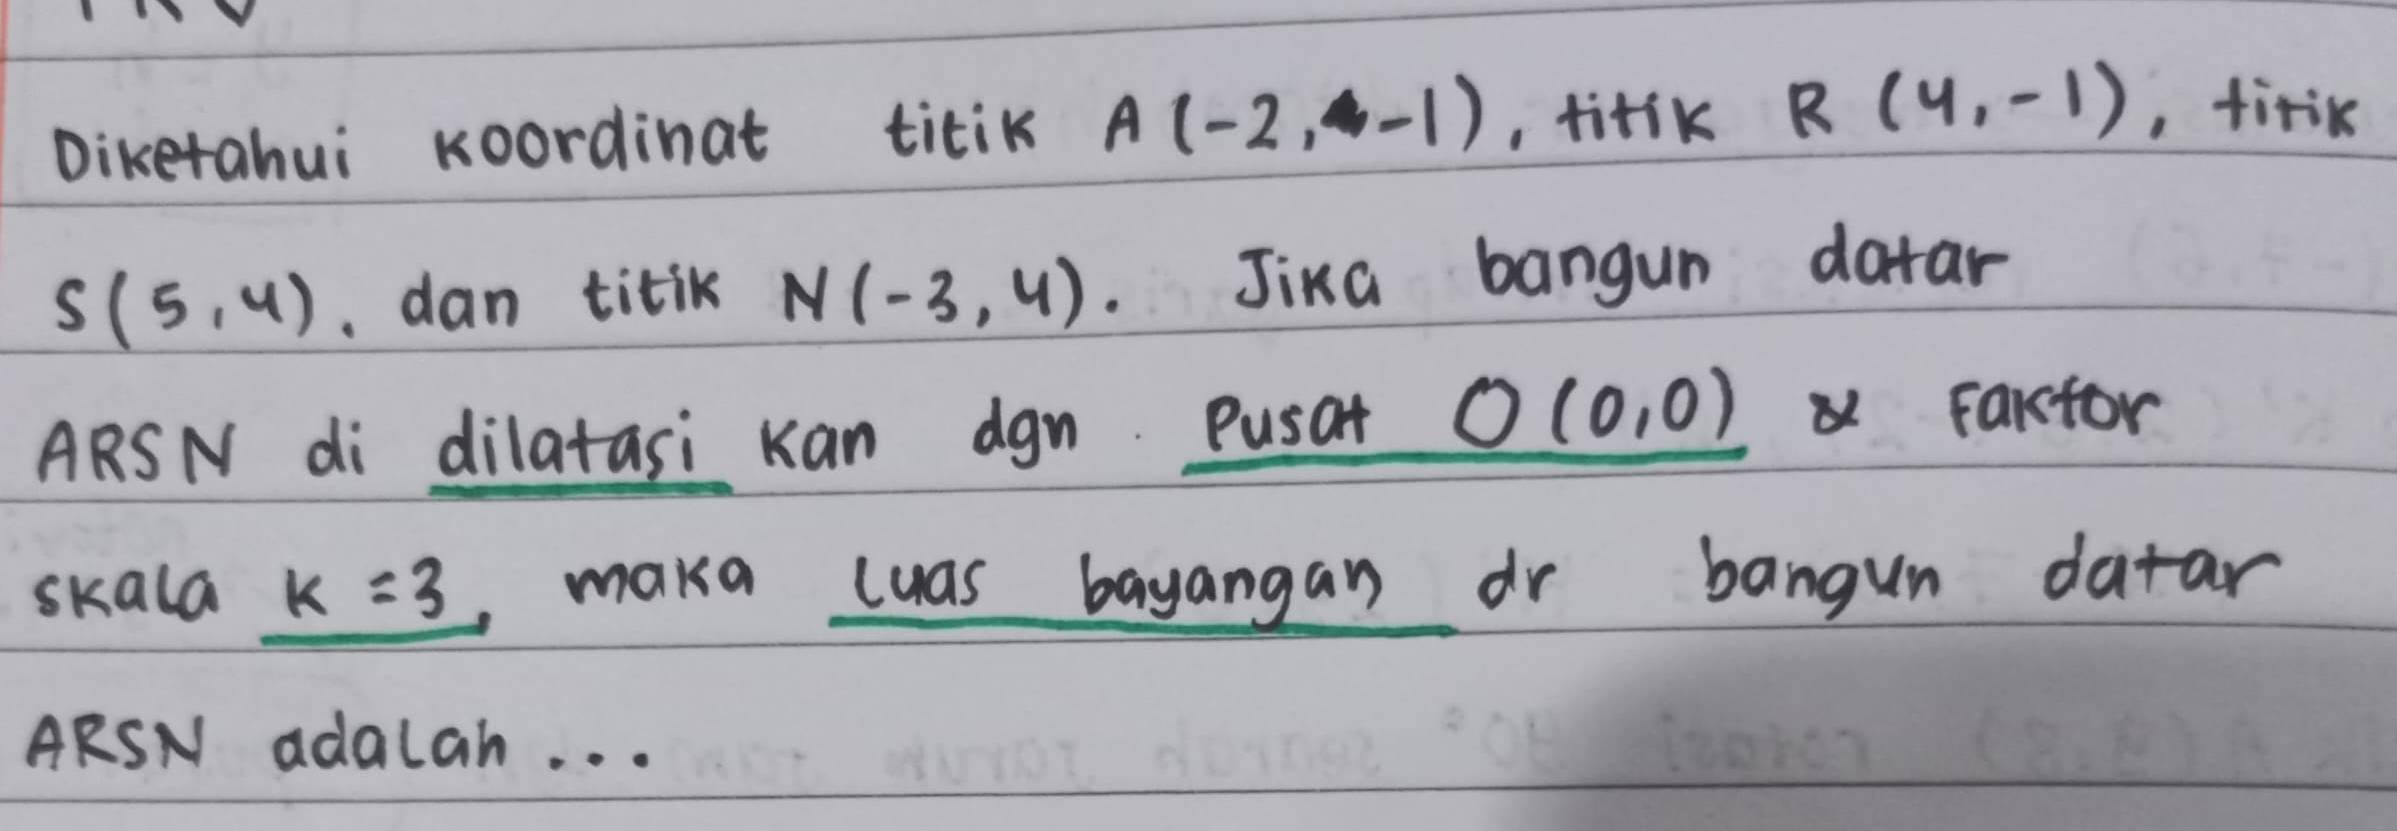 Diketahui koordinat titik A (-2, -1), titik R (4, -1), titik
S (5, 4), dan titik N (-3, 4). Jika bangun datar
ARSN di dilatasi kan dgn Pusat O (0,0) & Faktor
skala k = 3, maka luas bayangan dr bangun datar
ARSN adalah ...